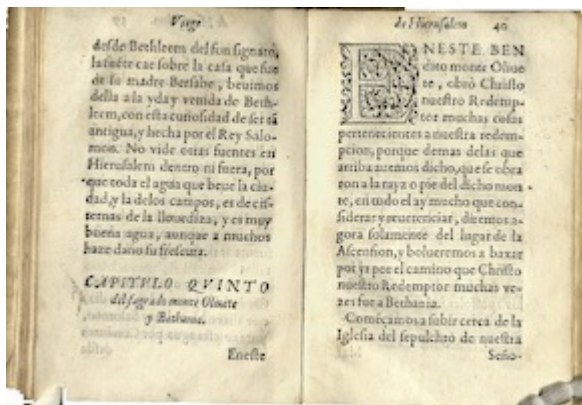 Viage
desde Bethleem del fon signato,
la fuēte cae sobre la casa que fue
de su madre Bersabe, beuimos
della a la yda y venida de Beth-
leem, con esta curiosidad de ser tā
antigua, y hecha por el Rey Salo-
mon. No vide otras fuentes en
Hierusalem dentro ni fuera, por
que toda el agua que beue la ciu-
dad, y la de los campos, es de cis-
ternas de la llouediza, y es muy
buena agua, aunque a muchos
haze daño su frescura.
CAPITVLO QVINTO
del sagrado monte Oliuete
y Bethania.
Eneste
de Hierusalem 40
ENESTE BEN
dito monte Oliue
te, obrò Christo
nuestro Redemp-
tor muchas cosas
pertenecientes a nuestra redem-
pcion, porque demas delas que
arriba auemos dicho, que se obra
ron a la rayz o pie del dicho mon
te, en todo el ay mucho que con-
siderar y reuerenciar, diremos a-
gora solamente del lugar de la
Ascension, y bolueremos a baxar
por ya por el camino que Christo
nuestro Redemptor muchas ve-
zes fue a Bethania.
Começamos a subir cerca de la
Iglesia del sepulchro de nuestra
Seño-